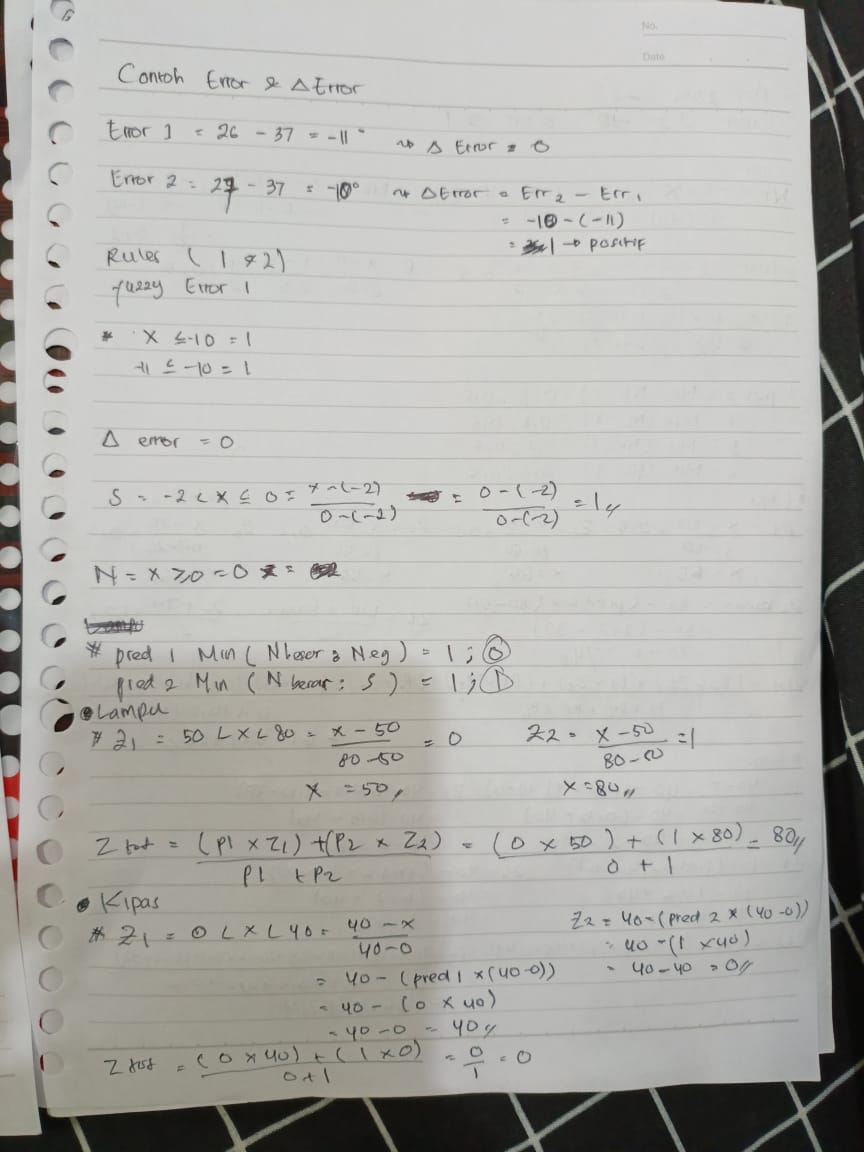 No.
Date
Contoh Error & Δ Error
Error 1 = 26 - 37 = -11° ~> Δ Error = 0
Error 2 = 27 - 37 = -10° ~> Δ Error = Err 2 - Err 1
= -10 - (-11)
= 1 → positif
Rules ( 1 & 2)
fuzzy Error 1
* x ≤ -10 = 1
-11 ≤ -10 = 1
Δ error = 0
S = -2 < x ≤ 0 = x-(-2) / 0-(-2) = 0-(-2) / 0-(-2) = 1 //
N = x ≥ 0 = 0
* pred 1 Min ( N besar ; Neg ) = 1 ; 0
pred 2 Min ( N besar ; S ) = 1 ; 1
• Lampu
* Z1 = 50 < x < 80 = x - 50 / 80 - 50 = 0 Z2 = x - 50 / 80 - 50 = 1
x = 50 // x = 80 //
Z tot = (P1 x Z1) + (P2 x Z2) / P1 + P2 = (0 x 50) + (1 x 80) / 0 + 1 = 80 //
• Kipas
* Z1 = 0 < x < 40 = 40 - x / 40 - 0 Z2 = 40 - (pred 2 x (40 - 0))
= 40 - (1 x 40)
= 40 - (pred 1 x (40-0)) = 40 - 40 = 0 //
= 40 - (0 x 40)
= 40 - 0 = 40 //
Z tot = (0 x 40) + (1 x 0) / 0 + 1 = 0 / 1 = 0